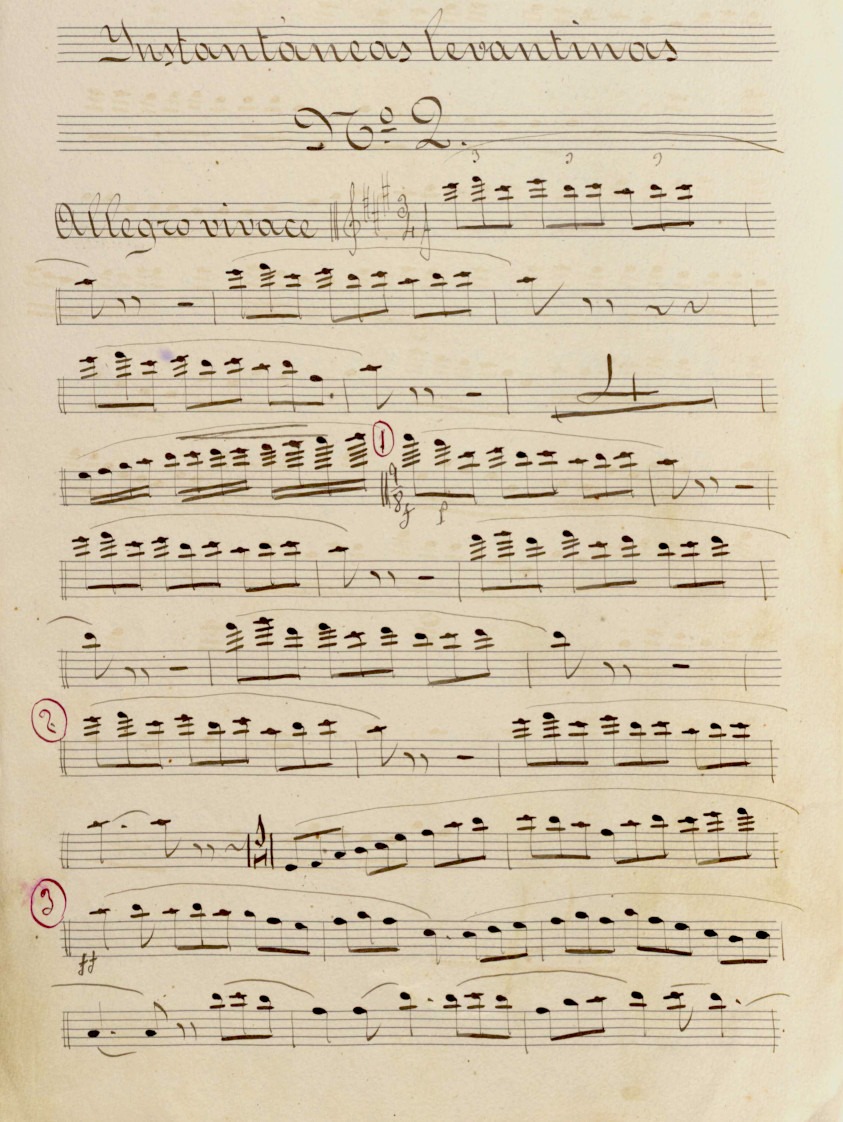 Ynstantáneas levantinas
Nº 2.
3 3 3
Allegro vivace 3/4 f
4
1
9/8 f p
2
3
ff